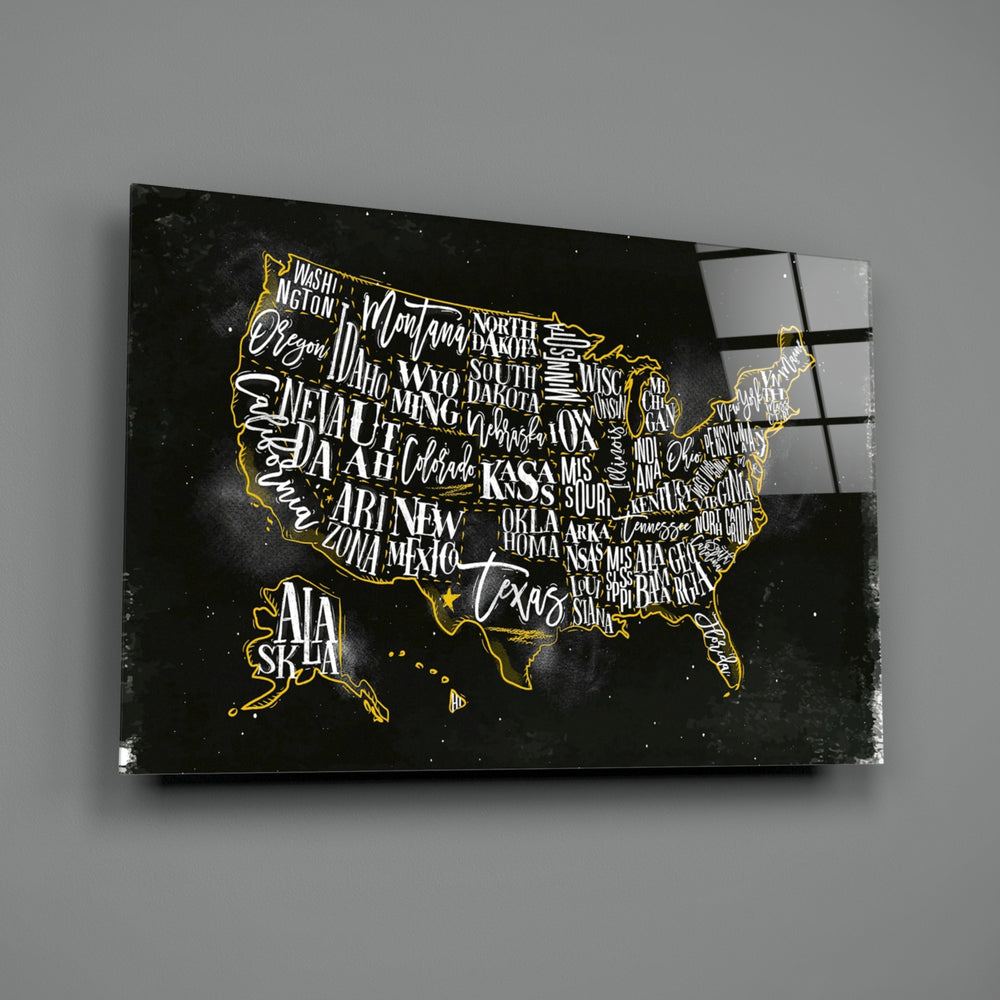 WASHI
NGTON
Oregon
California
IDAHO
NEVA
DA
Montana
WYO
MING
UT
AH
Colorado
ARI
ZONA
NEW
MEXICO
NORTH
DAKOTA
SOUTH
DAKOTA
Nebraska
KANSAS
OKLA
HOMA
Texas
MINNISOTA
IOWA
MIS
SOURI
ARKA
NSAS
LOUI
SIANA
WISC
ONSIN
Illinois
MI
CHI
GAN
INDI
ANA
Ohio
KENTUCKY
Tennessee
MIS
SIS
SIP
PI
ALA
BAM
GEO
RGIA
Florida
VIRGINIA
NORTH CROLIN
New York
Maine
ALA
SKA
HI